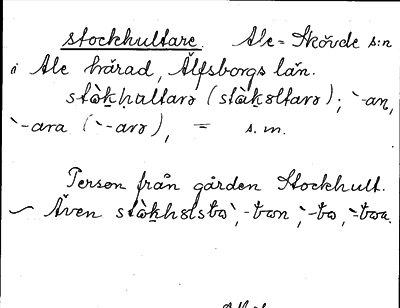 stockhultare. Ale-Skövde s:n
i Ale härad, Älfsborgs län.
ståk̲hultarə (ståk̲əltarə); `-an,
`-ara (`-arə), = s. m.
Person från gården Stockhult.
~ Även